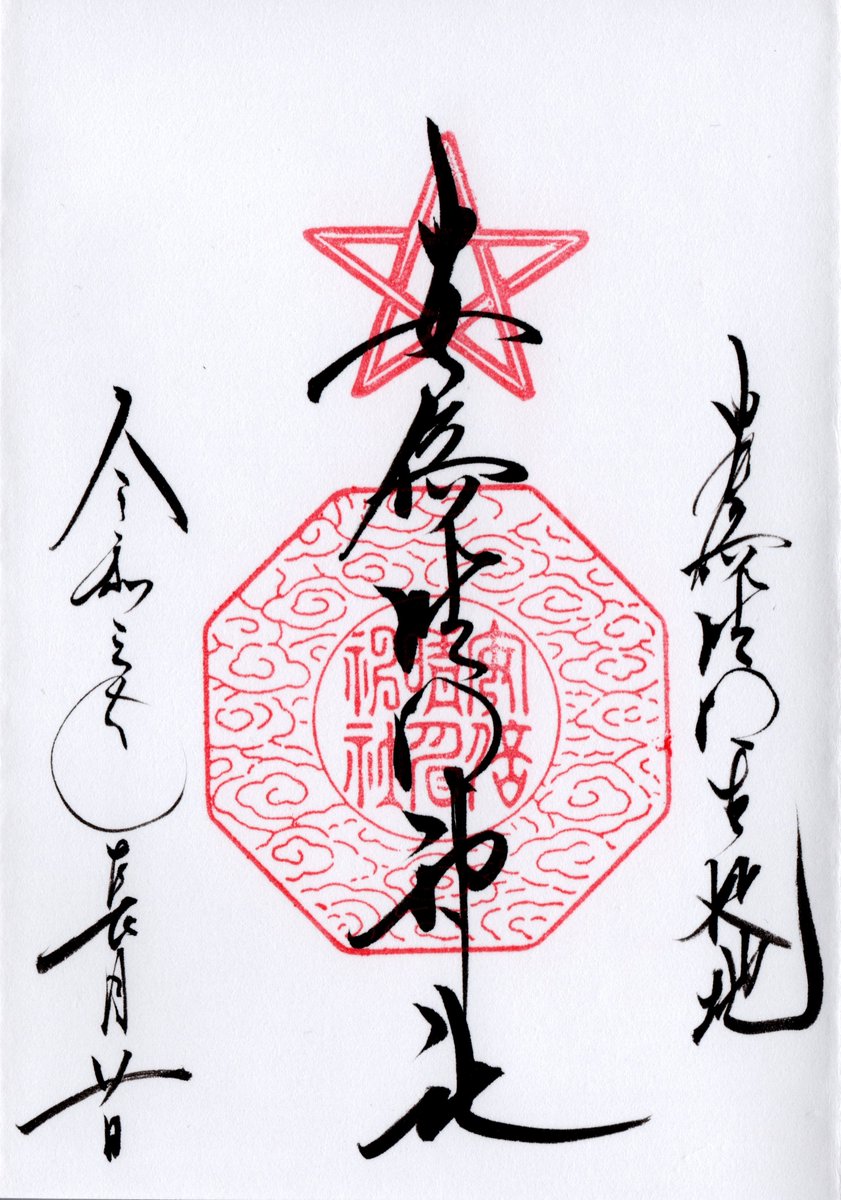 安倍晴明生誕地
安倍晴明神社
令和三年長月廿日
安倍
晴明
神社